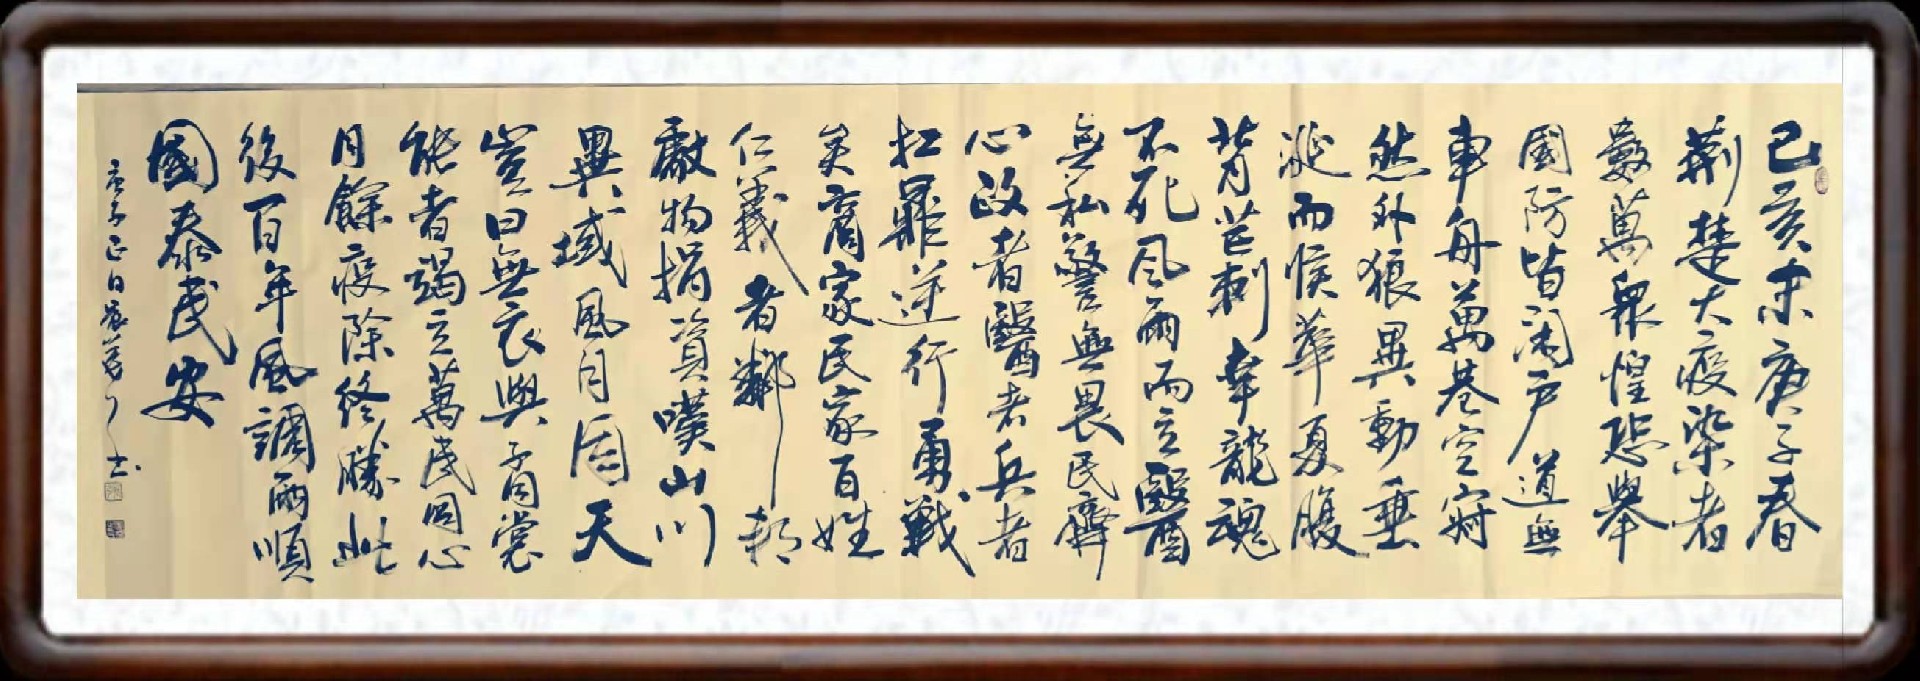 己亥末庚子春
荊楚大疫染者
數萬眾惶恐舉
國防皆閉戶道無
車舟萬巷空寂
然外狼異動垂
涎而候華夏腹
背芒刺幸龍魂
不死風雨而立醫
無私警無畏民齊
心政者醫者兵者
扛罪逆行勇戰
矣商家民家百姓
仁義者鄰邦
獻物捐資嘆山川
異域風月同天
豈曰無衣與子同裳
能者竭立萬民同心
月餘疫除終勝此
後百年風調雨順
國泰民安
庚子正日 書